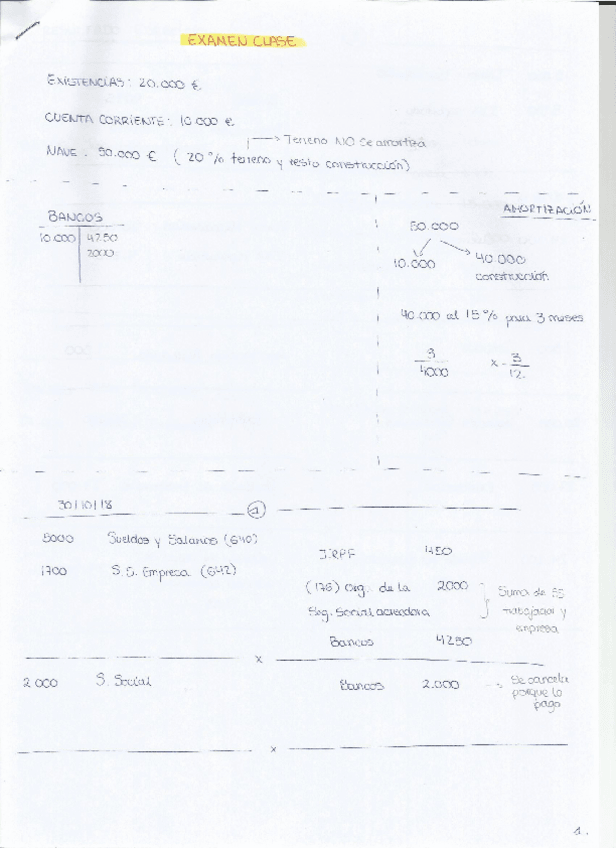 EXAMEN CLASE
EXISTENCIAS: 20.000 €
CUENTA CORRIENTE: 10.000 €
→ Terreno NO se amortiza
NAVE: 50.000 € (20% terreno y resto construcción)
BANCOS
10.000 4250
2000
AMORTIZACIÓN
50.000
10.000 40.000
construcción
40.000 al 15% para 3 meses
4000 x 3
12
30/10/18
5000 Sueldos y Salarios (640)
1700 S.S. Empresa (642)
I.R.P.F
(476) Org. de la 2000
Seg. Social acreedora
Bancos 4250
Suma de SS
trabajador y
empresa
x
2.000 S. Social
Bancos 2.000 → Se cancela
porque lo
pago
x
1.